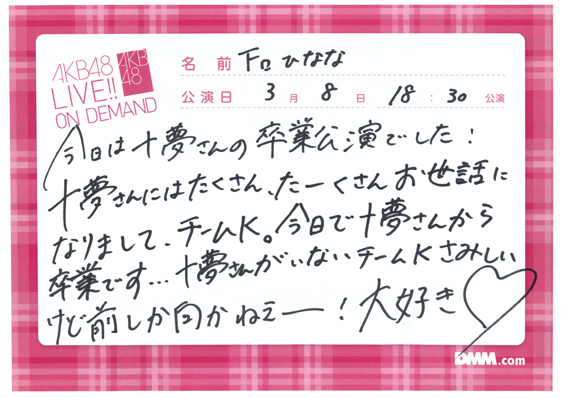 AKB48
LIVE!!
ON DEMAND
AKB
48
名前 下口ひなな
公演日 3月8日 18:30公演
今日は十夢さんの卒業公演でした!
十夢さんにはたくさん、たーくさんお世話に
なりまして、チームK。今日で十夢さんから
卒業です…十夢さんがいないチームKさみしい
けど前しか向かねえー!大好き♡
DMM.com